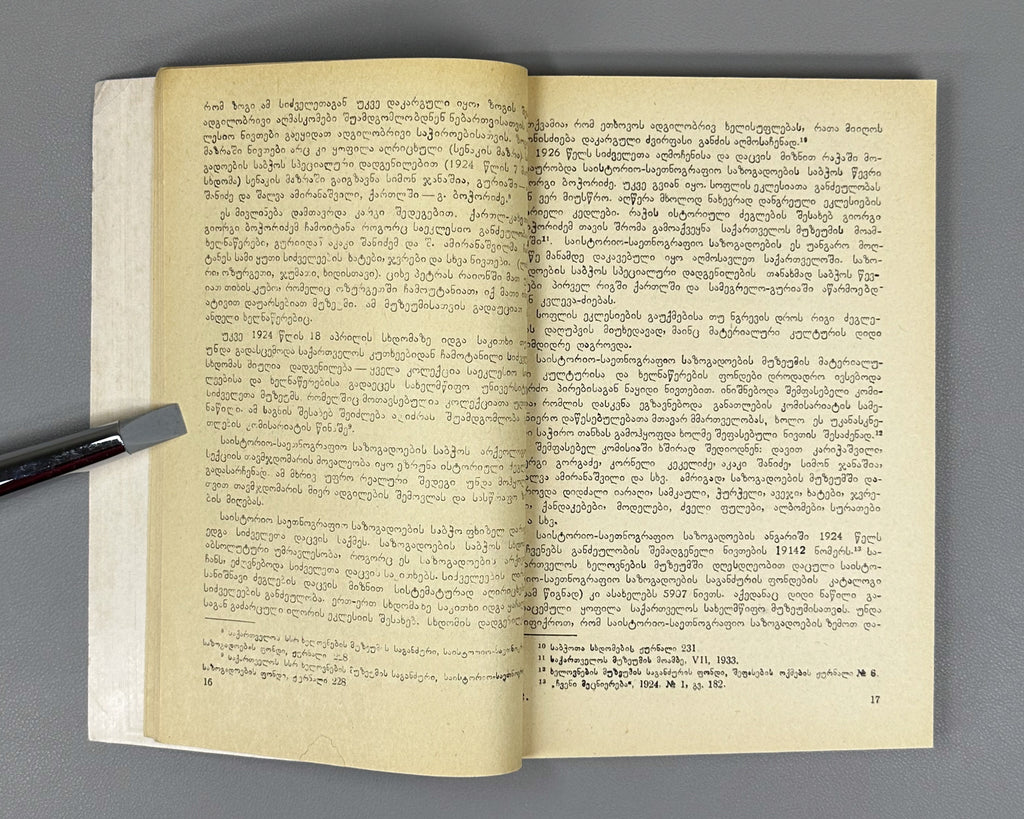 რომ ზოგი ამ სიძველეთაგან უკვე დაკარგული იყო, ზოგის
ადგილობრივი აღმასკომები შუამდგომლობდნენ ნებართვისათვის,
ლესიო ნივთები გაეყიდათ ადგილობრივი საჭიროებისათვის,
მაზრაში ნივთები არც კი ყოფილა აღრიცხული (სენაკის
გადოების საბჭოს სპეციალური დადგენილებით (1924 წლის 7
სხდომა) სენაკის მაზრაში გაიგზავნა სიმონ ჯანაშია, გურიაში
შანიძე და შალვა ამირანაშვილი, ქართლში — გ. ბოჭორიძე.⁸
ეს მივლინება დამთავრდა კარგი შედეგებით. ქართლ-
გიორგი ბოჭორიძემ ჩამოიტანა როგორც საეკლესიო
ხელნაწერები, გურიიდან აკაკი შანიძემ და შ. ამირანაშვილმა
ტანეს სამი ყუთი სიძველეების ხატები, ჯვრები და სხვა ნივთები.
რი ოზურგეთი, ჯუმათი, ხიდისთავი). ციხე პეტრას რაიონში მათ
იათ თიხის კუბო, რომელიც ოზურგეთში ჩამოუტანიათ, იქ მათი
ატივით დაუარსებიათ მუზეუმი. ამ მუზეუმისათვის გადაუციათ
ანდელი ხელნაწერებიც.
უკვე 1924 წლის 18 აპრილის სხდომაზე იდგა საკითხი
უნდა გადასცემოდა საქართველოს კუთხეებიდან ჩამოტანილი
სხდომას მიუღია დადგენილება — ყველა კოლექცია საეკლესიო
ლეებისა და ხელნაწერებისა გადაეცეს სახელმწიფო
სიძველეთა მუზეუმს, რომელშიც მოთავსებულია კოლექციათა
ნაწილი. ამ საგნის შესახებ შეიძლება აღიძრას შუამდგომლობა
თლების კომისარიატის წინაშე⁹.
საისტორიო-საეთნოგრაფიო საზოგადოების საბჭოს
სექციის თავმჯდომარის მოვალეობა იყო ეზრუნა ისტორიული
გადასარჩენად. ამ მხრივ უფრო რეალური შედეგი უნდა
თვით თავმჯდომარის მიერ ადგილების შემოვლას და
ბის მიღებას.
საისტორიო საეთნოგრაფიო საზოგადოების საბჭო ფხიზელ
ედგა სიძველეთა დაცვის საქმეს. საზოგადოების საბჭოს
აბსოლუტური უმრავლესობა, როგორც ეს საზოგადოების
ჩანს, ეძღვნებოდა სიძველეთა დაცვის საკითხებს. სიძველეების
სანიშნავი ძეგლების დაცვის მიზნით სისტემატურად
სიძველეების განძეულობა. ერთ-ერთ სხდომაზე საკითხი იდგა
საგან გაძარცული ილორის ეკლესიის შესახებ. სხდომის
⁸ საქართველოს სსრ ხელოვნების მუზეუმის საგანძური, საისტორიო-
საზოგადოების ფონდი, ჟურნალი 228
⁹ საქართველოს სსრ ხელოვნების მუზეუმის საგანძური, საისტორიო-
საზოგადოების ფონდი, ჟურნალი 228.
16
რომ ეთხოვოს ადგილობრივ ხელისუფლებას, რათა მიიღოს
დაკარგული ძვირფასი განძის აღმოსაჩენად.¹⁰
1926 წელს სიძველეთა აღმოჩენისა და დაცვის მიზნით რაჭაში მო-
საისტორიო-საეთნოგრაფიო საზოგადოების საბჭოს წევრი
ბოჭორიძე. უკვე გვიან იყო. სოფლის ეკლესიათა განძეულობას
ვერ მიუსწრო. აღწერა მხოლოდ ნახევრად დანგრეული ეკლესიების
კედლები. რაჭის ისტორიული ძეგლების შესახებ გიორგი
თავის შრომა გამოაქვეყნა საქართველოს მუზეუმის მოამ-
საისტორიო-საეთნოგრაფიო საზოგადოების ეს უანგარო მოღ-
მანამდე დაკავებული იყო აღმოსავლეთ საქართველოში. საზო-
საბჭოს სპეციალური დადგენილების თანახმად საბჭოს წევ-
პირველ რიგში ქართლში და სამეგრელო-გურიაში აწარმოებდ-
კვლევა-ძიებას.
სოფლის ეკლესიების გაუქმებისა თუ ნგრევის დროს რიგი ძეგლე-
დაღუპვის მიუხედავად, მაინც მატერიალური კულტურის დიდი
დაგროვდა.
საისტორიო-საეთნოგრაფიო საზოგადოების მუზეუმის მატერიალუ-
კულტურისა და ხელნაწერების ფონდები დროდადრო ივსებოდა
პირებისაგან ნაყიდი ნივთებით. ინიშნებოდა შემფასებელი კომი-
რომლის დასკვნა ეგზავნებოდა განათლების კომისარიატის სამე-
დაწესებულებათა მთავარ მმართველობას, ხოლო ეს უკანასკნე-
საჭირო თანხას გამოჰყოფდა ხოლმე შეფასებული ნივთის შესაძენად.¹²
შემფასებელ კომისიაში ხშირად შედიოდნენ: დავით კარიჭაშვილი,
გორგაძე, კორნელი კეკელიძე, აკაკი შანიძე, სიმონ ჯანაშია,
ამირანაშვილი და სხვ. ამრიგად, საზოგადოების მუზეუმში და-
დიდძალი იარაღი, სამკაული, ჭურჭელი, ავეჯი, ხატები, ჯვრე-
ქანდაკებები, მოდელები, ძველი ფულები, ალბომები, სურათები
სხვ.
საისტორიო-საეთნოგრაფიო საზოგადოების ანგარიში 1924 წელს
განძეულობის შემადგენელი ნივთების 19142 ნომერს.¹³ სა-
ხელოვნების მუზეუმში დღესდღეობით დაცული საისტო-
საზოგადოების საგანძურის ფონდების კატალოგი
წიგნად) კი ასახელებს 5907 ნივთს. აქედანაც დიდი ნაწილი გა-
ყოფილა საქართველოს სახელმწიფო მუზეუმისათვის. უნდა
რომ საისტორიო-საეთნოგრაფიო საზოგადოების ზემოთ და-
¹⁰ საბჭოთა სხდომების ჟურნალი 231.
¹¹ საქართველოს მუზეუმის მოამბე, VII, 1933.
¹² ხელოვნების მუზეუმის საგანძურის ფონდი, შეფასების ოქმების ჟურნალი № 6.
¹³ „ჩვენი მეცნიერება“, 1924. № 1, გვ. 182.
17